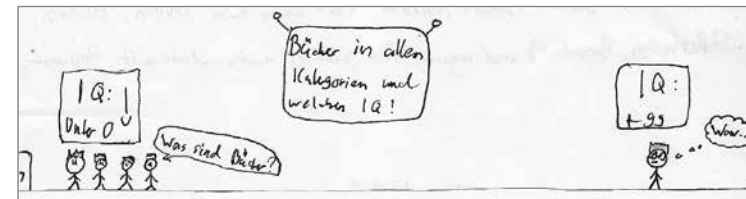 Bücher in allen
Kategorien und
welchen IQ!
IQ:
Unter 0
Was sind Bücher?
IQ:
+99
Wow..